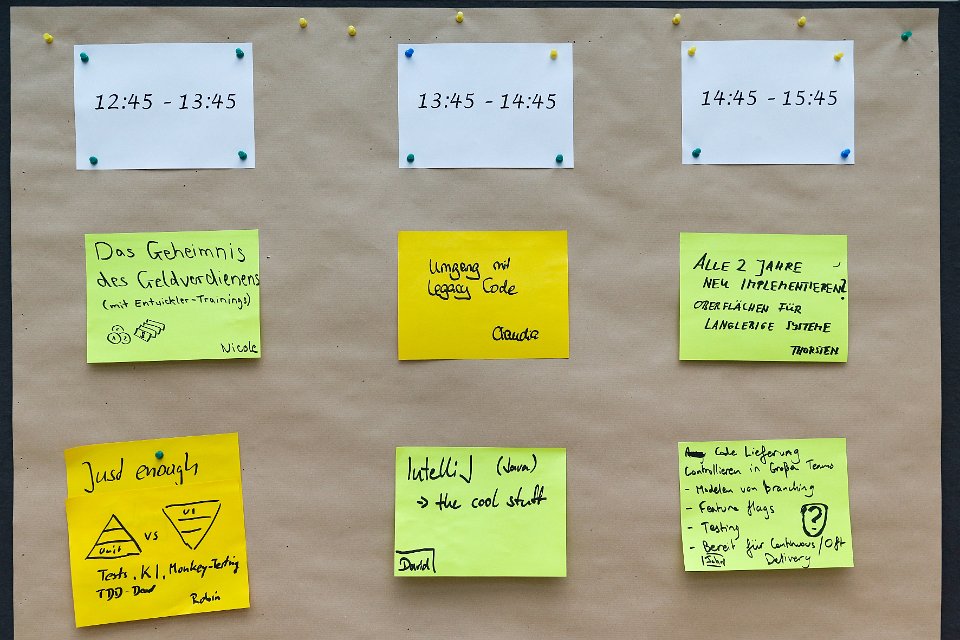 12:45 - 13:45
13:45 - 14:45
14:45 - 15:45
Das Geheimnis
des Geldverdienens
(mit Entwickler-Trainings)
Nicole
Umgang mit
Legacy Code
Claudia
ALLE 2 JAHRE
NEU IMPLEMENTIEREN?
OBERFLÄCHEN FÜR
LANGLEBIGE SYSTEME
THORSTEN
Just enough
Unit
VS
UI
Tests, KI, Monkey-Testing
TDD-
Robin
IntelliJ (Java)
→ the cool stuff
David
Code Lieferung
Controllieren in Große Teams
- Modelen von Branching
- Feature flags
- Testing
?
- Bereit für Continuous/Oft
Delivery
John